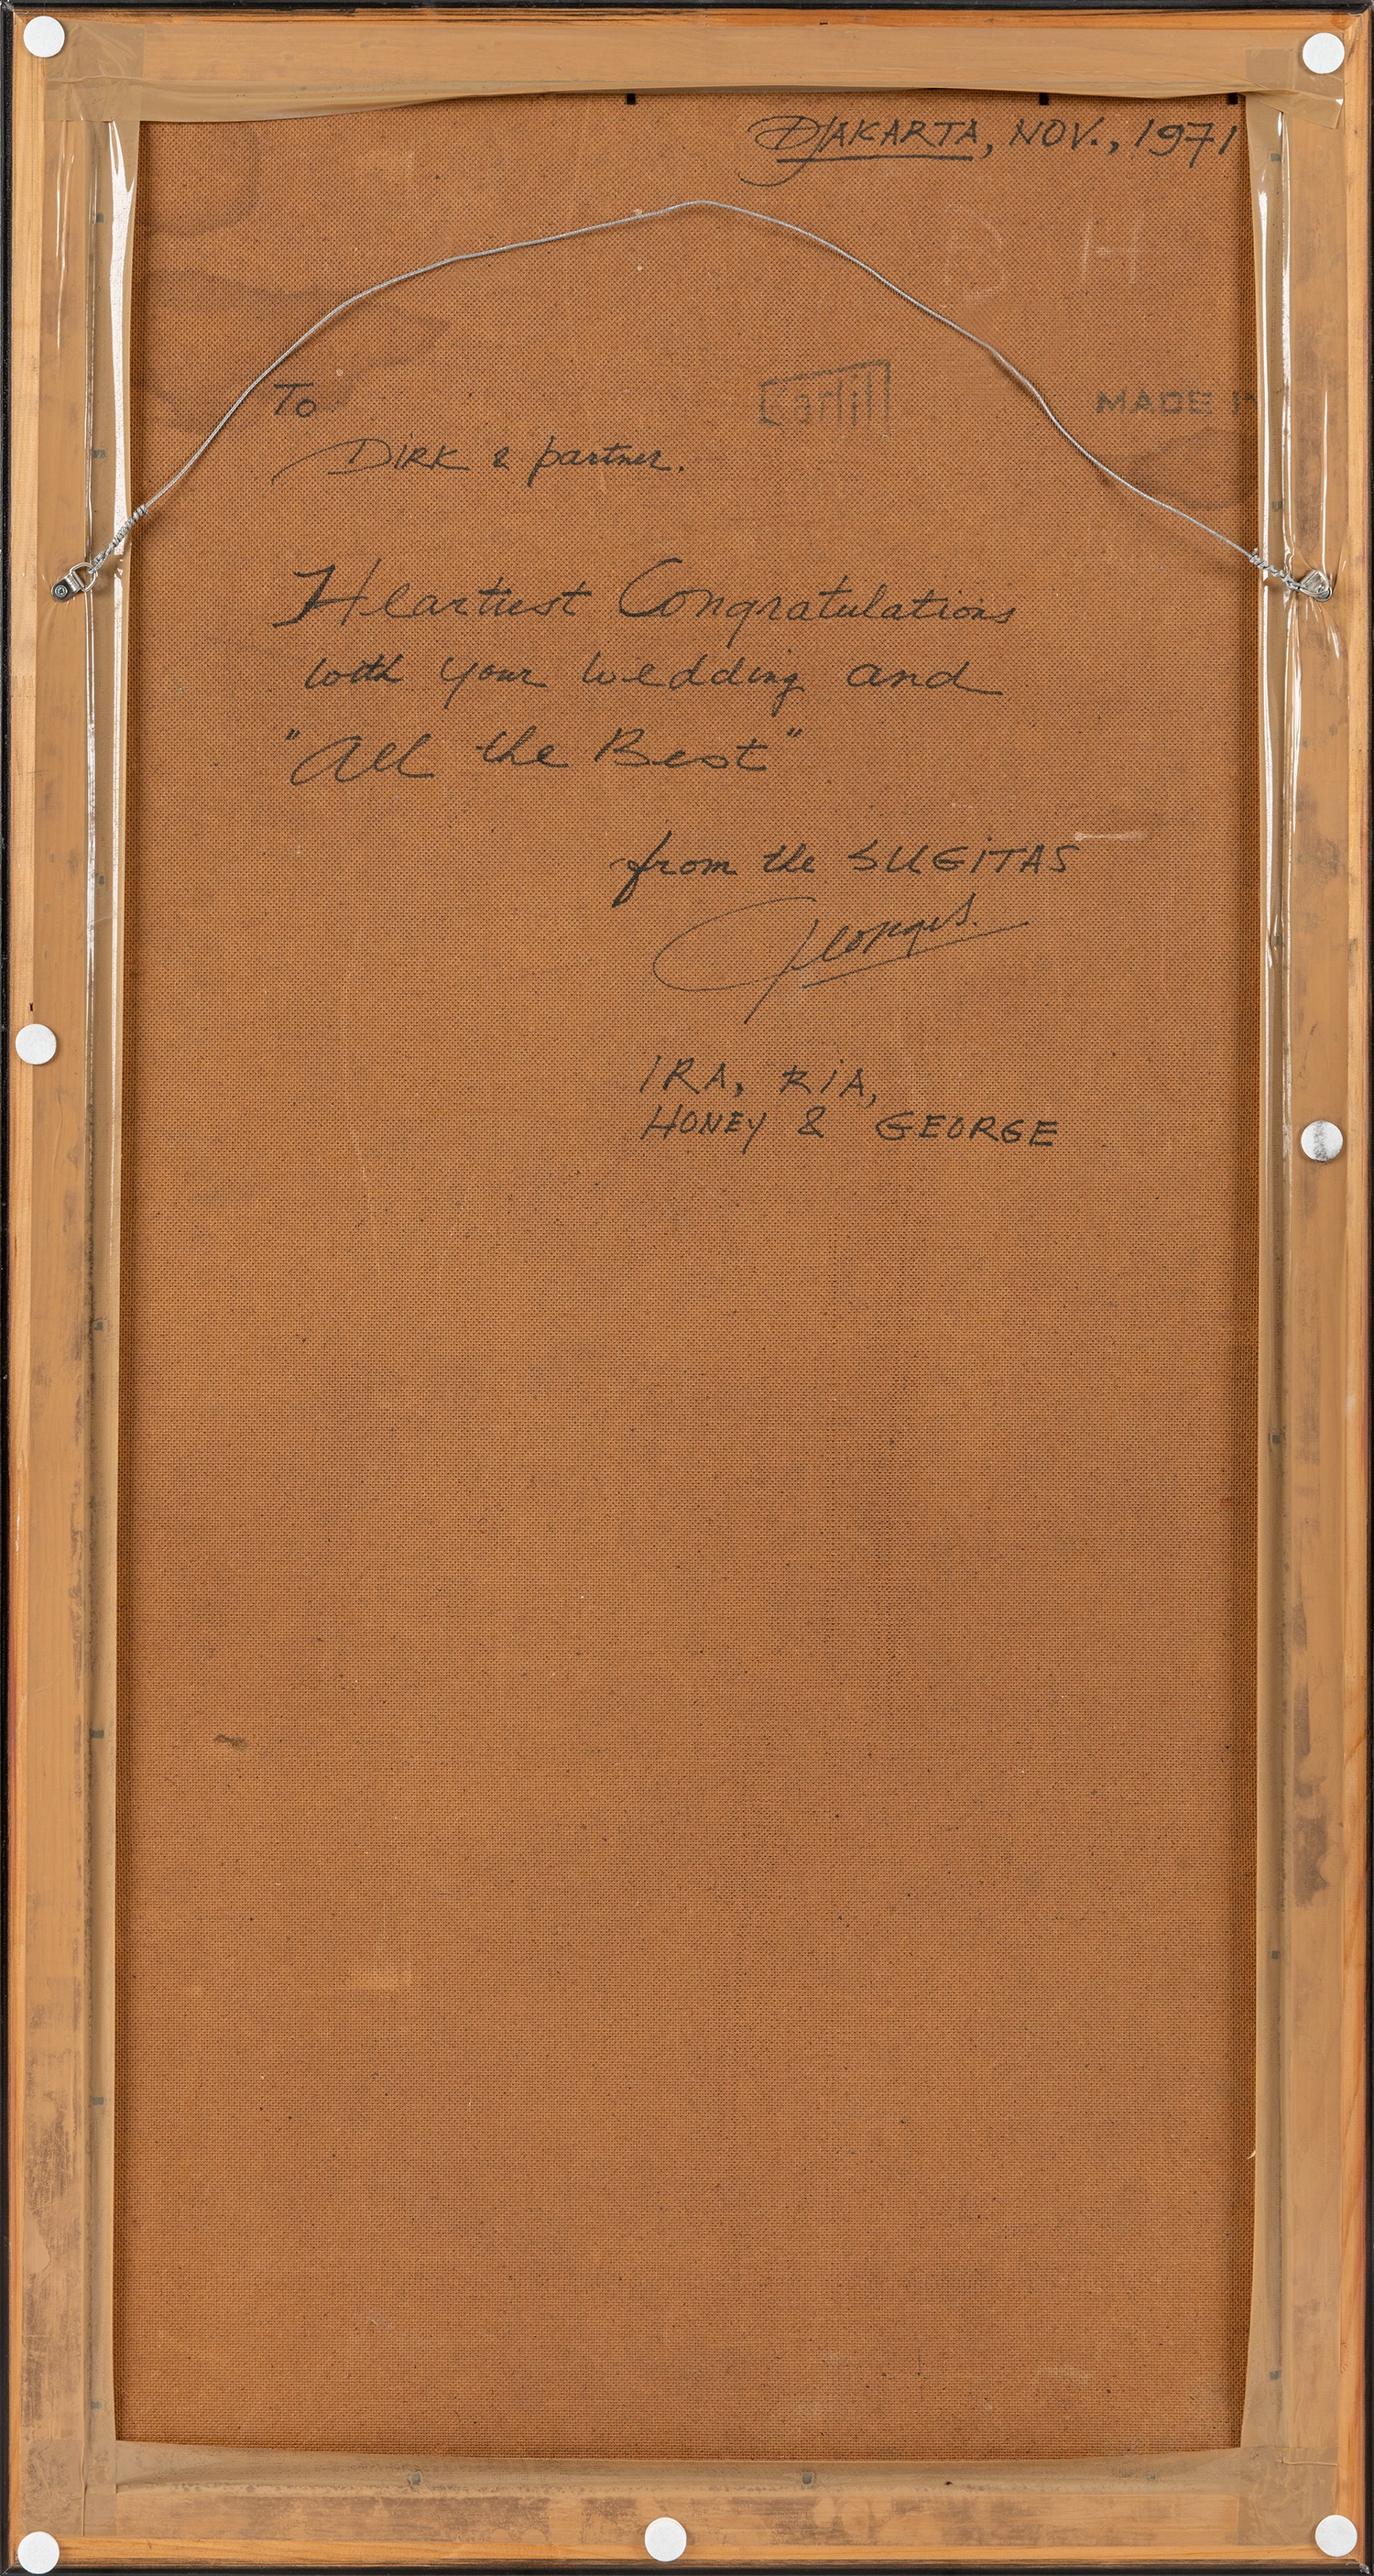 DJAKARTA, NOV., 1971
D H
To
Karlit
MADE IN
DIRK & partner.
Heartiest Congratulations
with your wedding and
"All the Best"
from the SUGITAS
Georges.
IRA, RIA,
HONEY & GEORGE